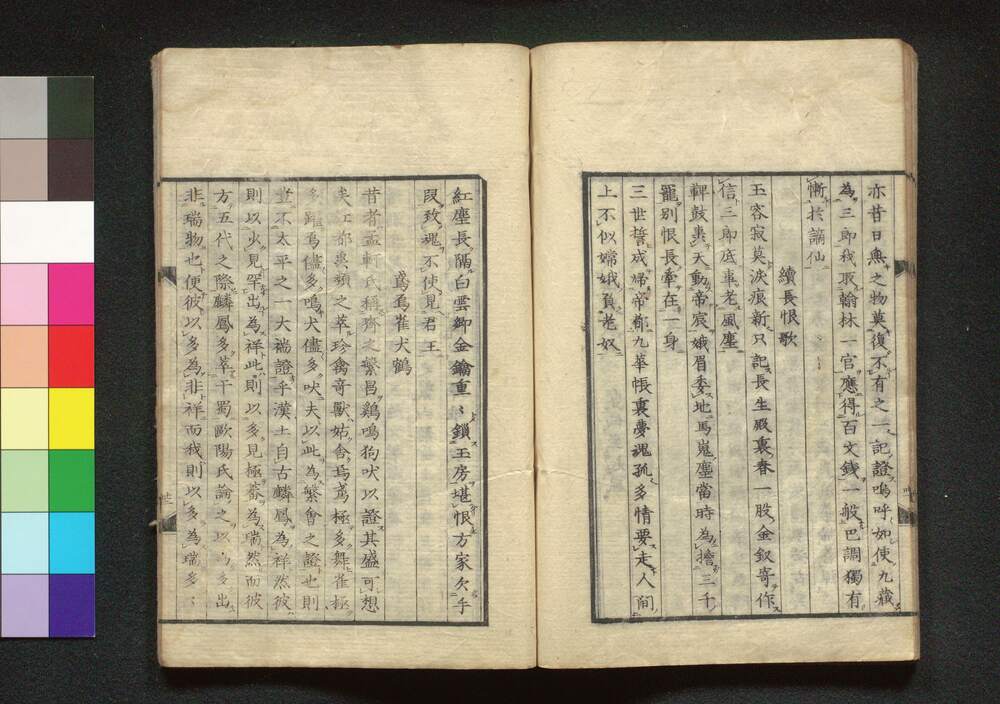 亦昔日無之物莫復不有之一記證嗚呼如使九蔵
為三郎我取翰林一官應得百文銭一般巴調獨有
慚於謫仙
續長恨歌
玉容寂莫涙痕新只記長生殿裏春一股金釵寄作
信三郎底事老風塵
鞞鼓裏天動帝宸娥眉委地馬嵬塵當時為擔三千
寵別恨長牽在一身
三世誓成婦帝都九華帳裏夢魂孤多情要走人間
上不似嫦娥負老奴
紅塵長隔白雲郷金鑰重〻鎖玉房堪恨方家欠手
段致魂不使見君王
鳶烏雀犬鶴
昔者孟軒氏稱齊之繁昌鷄鳴狗吠以證其盛可想
矣江都衆類之萃珍禽奇獣姑舎焉鳶極多舞雀極
多躍烏儘多鳴犬儘多吠夫以此為繁會之證也則
豈不太平之一大瑞證乎漢土自古麟鳳為祥然彼
則以少見罕出為祥此則以多見極蕃為瑞然而彼
方五代之際麟鳳多萃干蜀歐陽氏論之以為多出
非瑞物也便彼以多為非祥而我則以多為瑞多〻